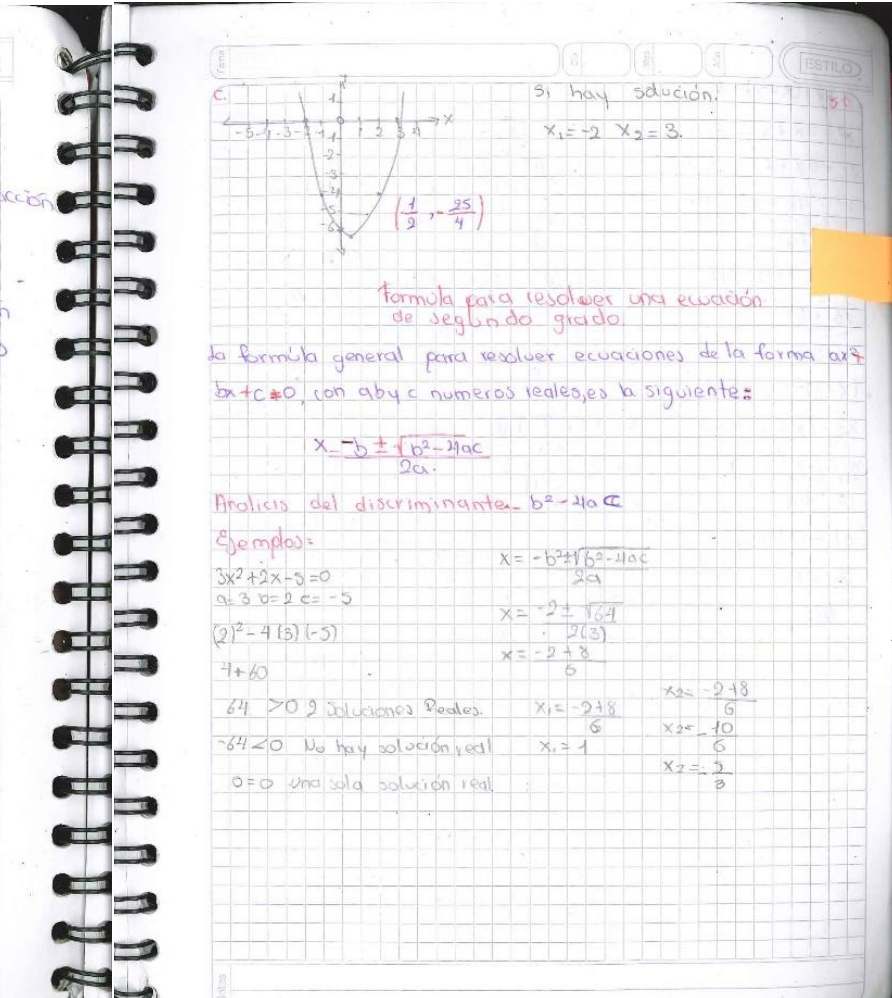 cción
Tema
Día
Mes
Año
ESTILO
C.
Si hay solución.
x₁ = -2 x₂ = 3.
1
-5 -4 -3 -2 -1 0 1 2 3 4 x
-1
-2
-3
-4
-5
-6
(1/2, -25/4)
Formula para resolver una ecuación
de segundo grado.
La formúla general para resolver ecuaciones de la forma ax²+
bx+c=0, con a b y c numeros reales, es la siguiente:
x = -b ± √b²-4ac / 2a.
Analicis del discriminante.- b²-4ac
Ejemplos:
3x²+2x-5=0
a=3 b=2 c=-5
(2)²-4(3)(-5)
4+60
64 >0 2 Soluciones Reales.
-64<0 No hay solución real
0=0 una sola solución real.
x = -b²±√b²-4ac / 2a
x = -2 ± √64 / 2(3)
x = -2+8 / 6
x₁ = -2+8 / 6
x₁ = 1
x₂ = -2+8 / 6
x₂ = -10 / 6
x₂ = -5 / 3
Notas